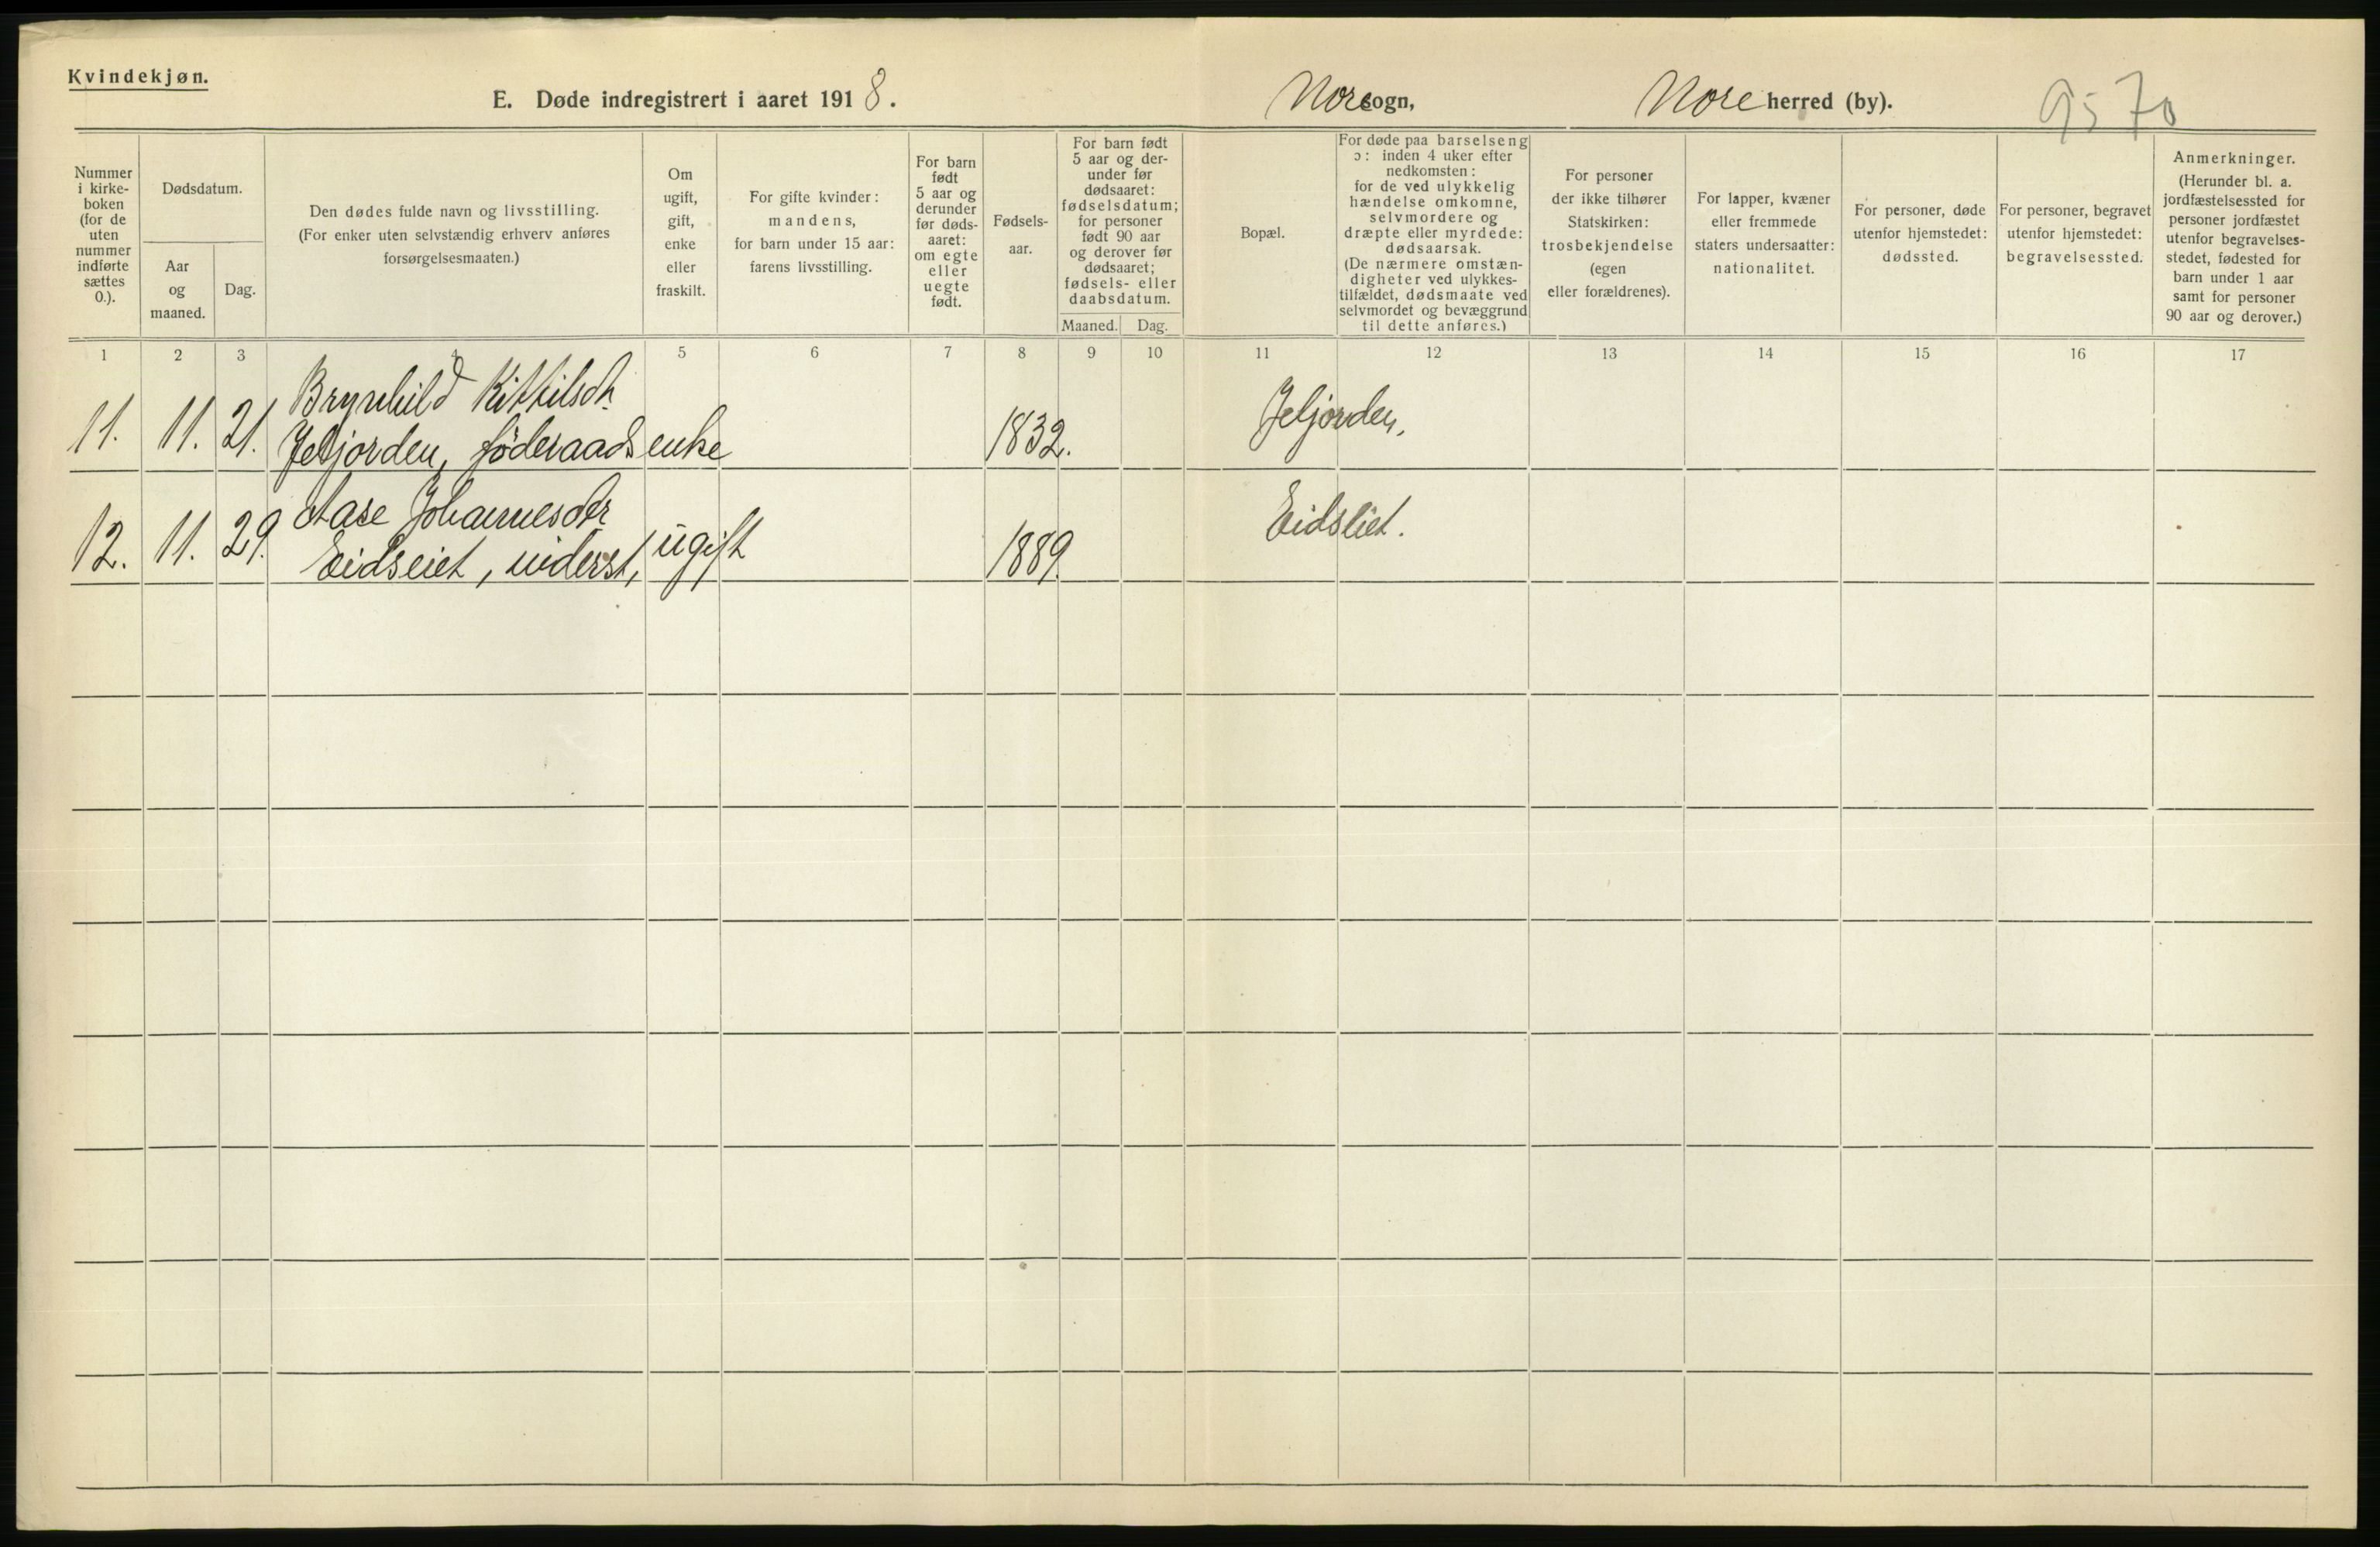 Kvindekjøn.
E. Døde indregistrert i aaret 1918.
Nore sogn,
Nore herred (by).
9570
Nummer i kirke-boken (for de uten nummer indførte sættes 0.).
Dødsdatum.
Aar og maaned.
Dag.
Den dødes fulde navn og livsstilling.
(For enker uten selvstændig erhverv anføres
forsørgelsesmaaten.)
Om
ugift,
gift,
enke
eller
fraskilt.
For gifte kvinder:
mandens,
for barn under 15 aar:
farens livsstilling.
For barn
født
5 aar og
derunder
før døds-
aaret:
om egte
eller
uegte
født.
Fødsels-
aar.
For barn født
5 aar og der-
under før
dødsaaret:
fødselsdatum;
for personer
født 90 aar
og derover før
dødsaaret;
fødsels- eller
daabsdatum.
Maaned.
Dag.
Bopæl.
For døde paa barselseng
ɔ: inden 4 uker efter
nedkomsten:
for de ved ulykkelig
hændelse omkomne,
selvmordere og
dræpte eller myrdede:
dødsaarsak.
(De nærmere omstæn-
digheter ved ulykkes-
tilfældet, dødsmaate ved
selvmordet og bevæggrund
til dette anføres.)
For personer
der ikke tilhører
Statskirken:
trosbekjendelse
(egen
eller forældrenes).
For lapper, kvæner
eller fremmede
staters undersaatter:
nationalitet.
For personer, døde
utenfor hjemstedet:
dødssted.
For personer, begravet
utenfor hjemstedet:
begravelsessted.
Anmerkninger.
(Herunder bl. a.
jordfæstelsessted for
personer jordfæstet
utenfor begravelses-
stedet, fødested for
barn under 1 aar
samt for personer
90 aar og derover.)
1 2 3 4 5 6 7 8 9 10 11 12 13 14 15 16 17
Brynhild Kittilsdt.
11. 11. 21. Jeljorden, föderaads enke 1832. Jeljorden.
Aase Johannesdtr
12. 11. 29. Eidseiet, inderst, ugift 1889. Eidsliet.